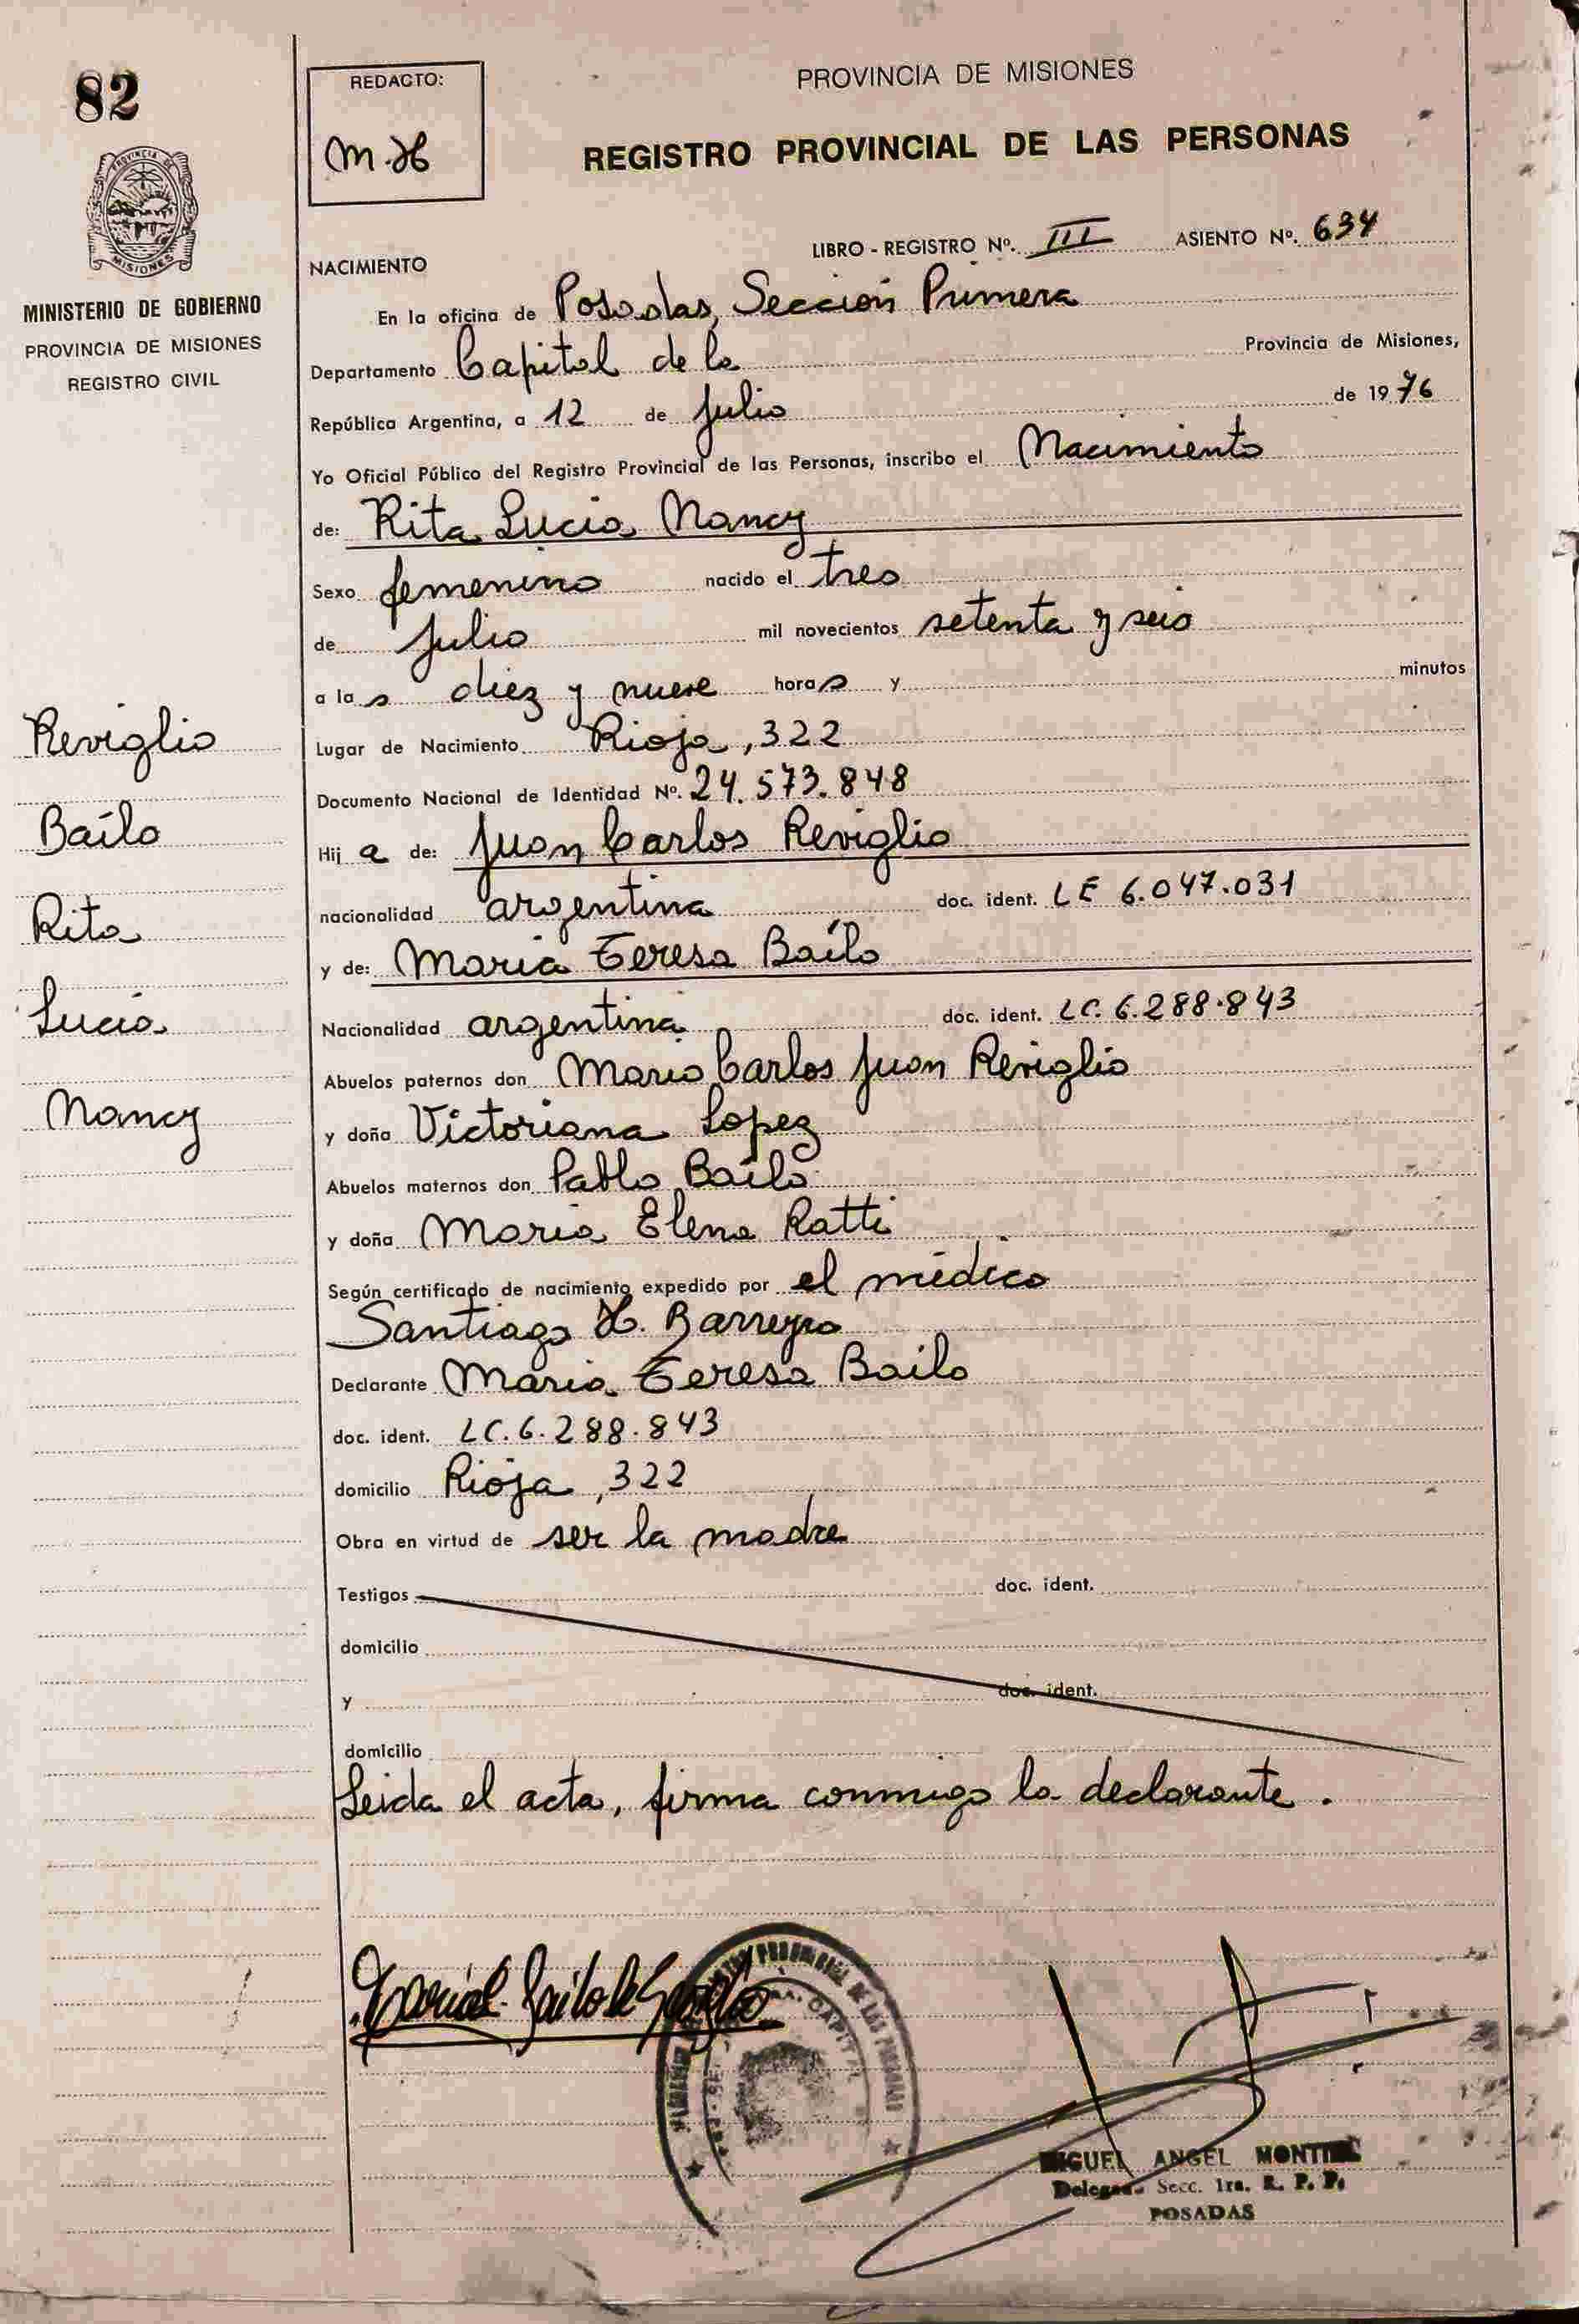 82
PROVINCIA DE MISIONES
MINISTERIO DE GOBIERNO
PROVINCIA DE MISIONES
REGISTRO CIVIL
Reviglio
Bailo
Rita
Lucia
Nancy
REDACTO:
M.H
PROVINCIA DE MISIONES
REGISTRO PROVINCIAL DE LAS PERSONAS
LIBRO - REGISTRO Nº. III ASIENTO Nº. 634
NACIMIENTO
En la oficina de Posadas, Sección Primera
Departamento Capital de la Provincia de Misiones,
República Argentina, a 12 de Julio de 1976
Yo Oficial Público del Registro Provincial de las Personas, inscribo el Nacimiento
de: Rita Lucia Nancy
Sexo femenino nacido el tres
de Julio mil novecientos setenta y seis
a la s diez y nueve horas y minutos
Lugar de Nacimiento Rioja, 322
Documento Nacional de Identidad Nº. 24.573.848
Hij a de: Juan Carlos Reviglio
nacionalidad argentina doc. ident. LE 6.047.031
y de: Maria Teresa Bailo
Nacionalidad argentina doc. ident. LC. 6.288.843
Abuelos paternos don Mario Carlos Juan Reviglio
y doña Victoriana Lopez
Abuelos maternos don Pablo Bailo
y doña Maria Elena Ratti
Según certificado de nacimiento expedido por el médico
Santiago H. Barreyro
Declarante Maria Teresa Bailo
doc. ident. LC. 6.288.843
domicilio Rioja, 322
Obra en virtud de ser la madre
Testigos doc. ident.
domicilio
y doc. ident.
domicilio
Leida el acta, firma conmigo la declarante.
PROVINCIAL DE LAS PERSONAS
CAPITAL
MIGUEL ANGEL MONTIEL
Delegado Secc. 1ra. R. P. P.
POSADAS